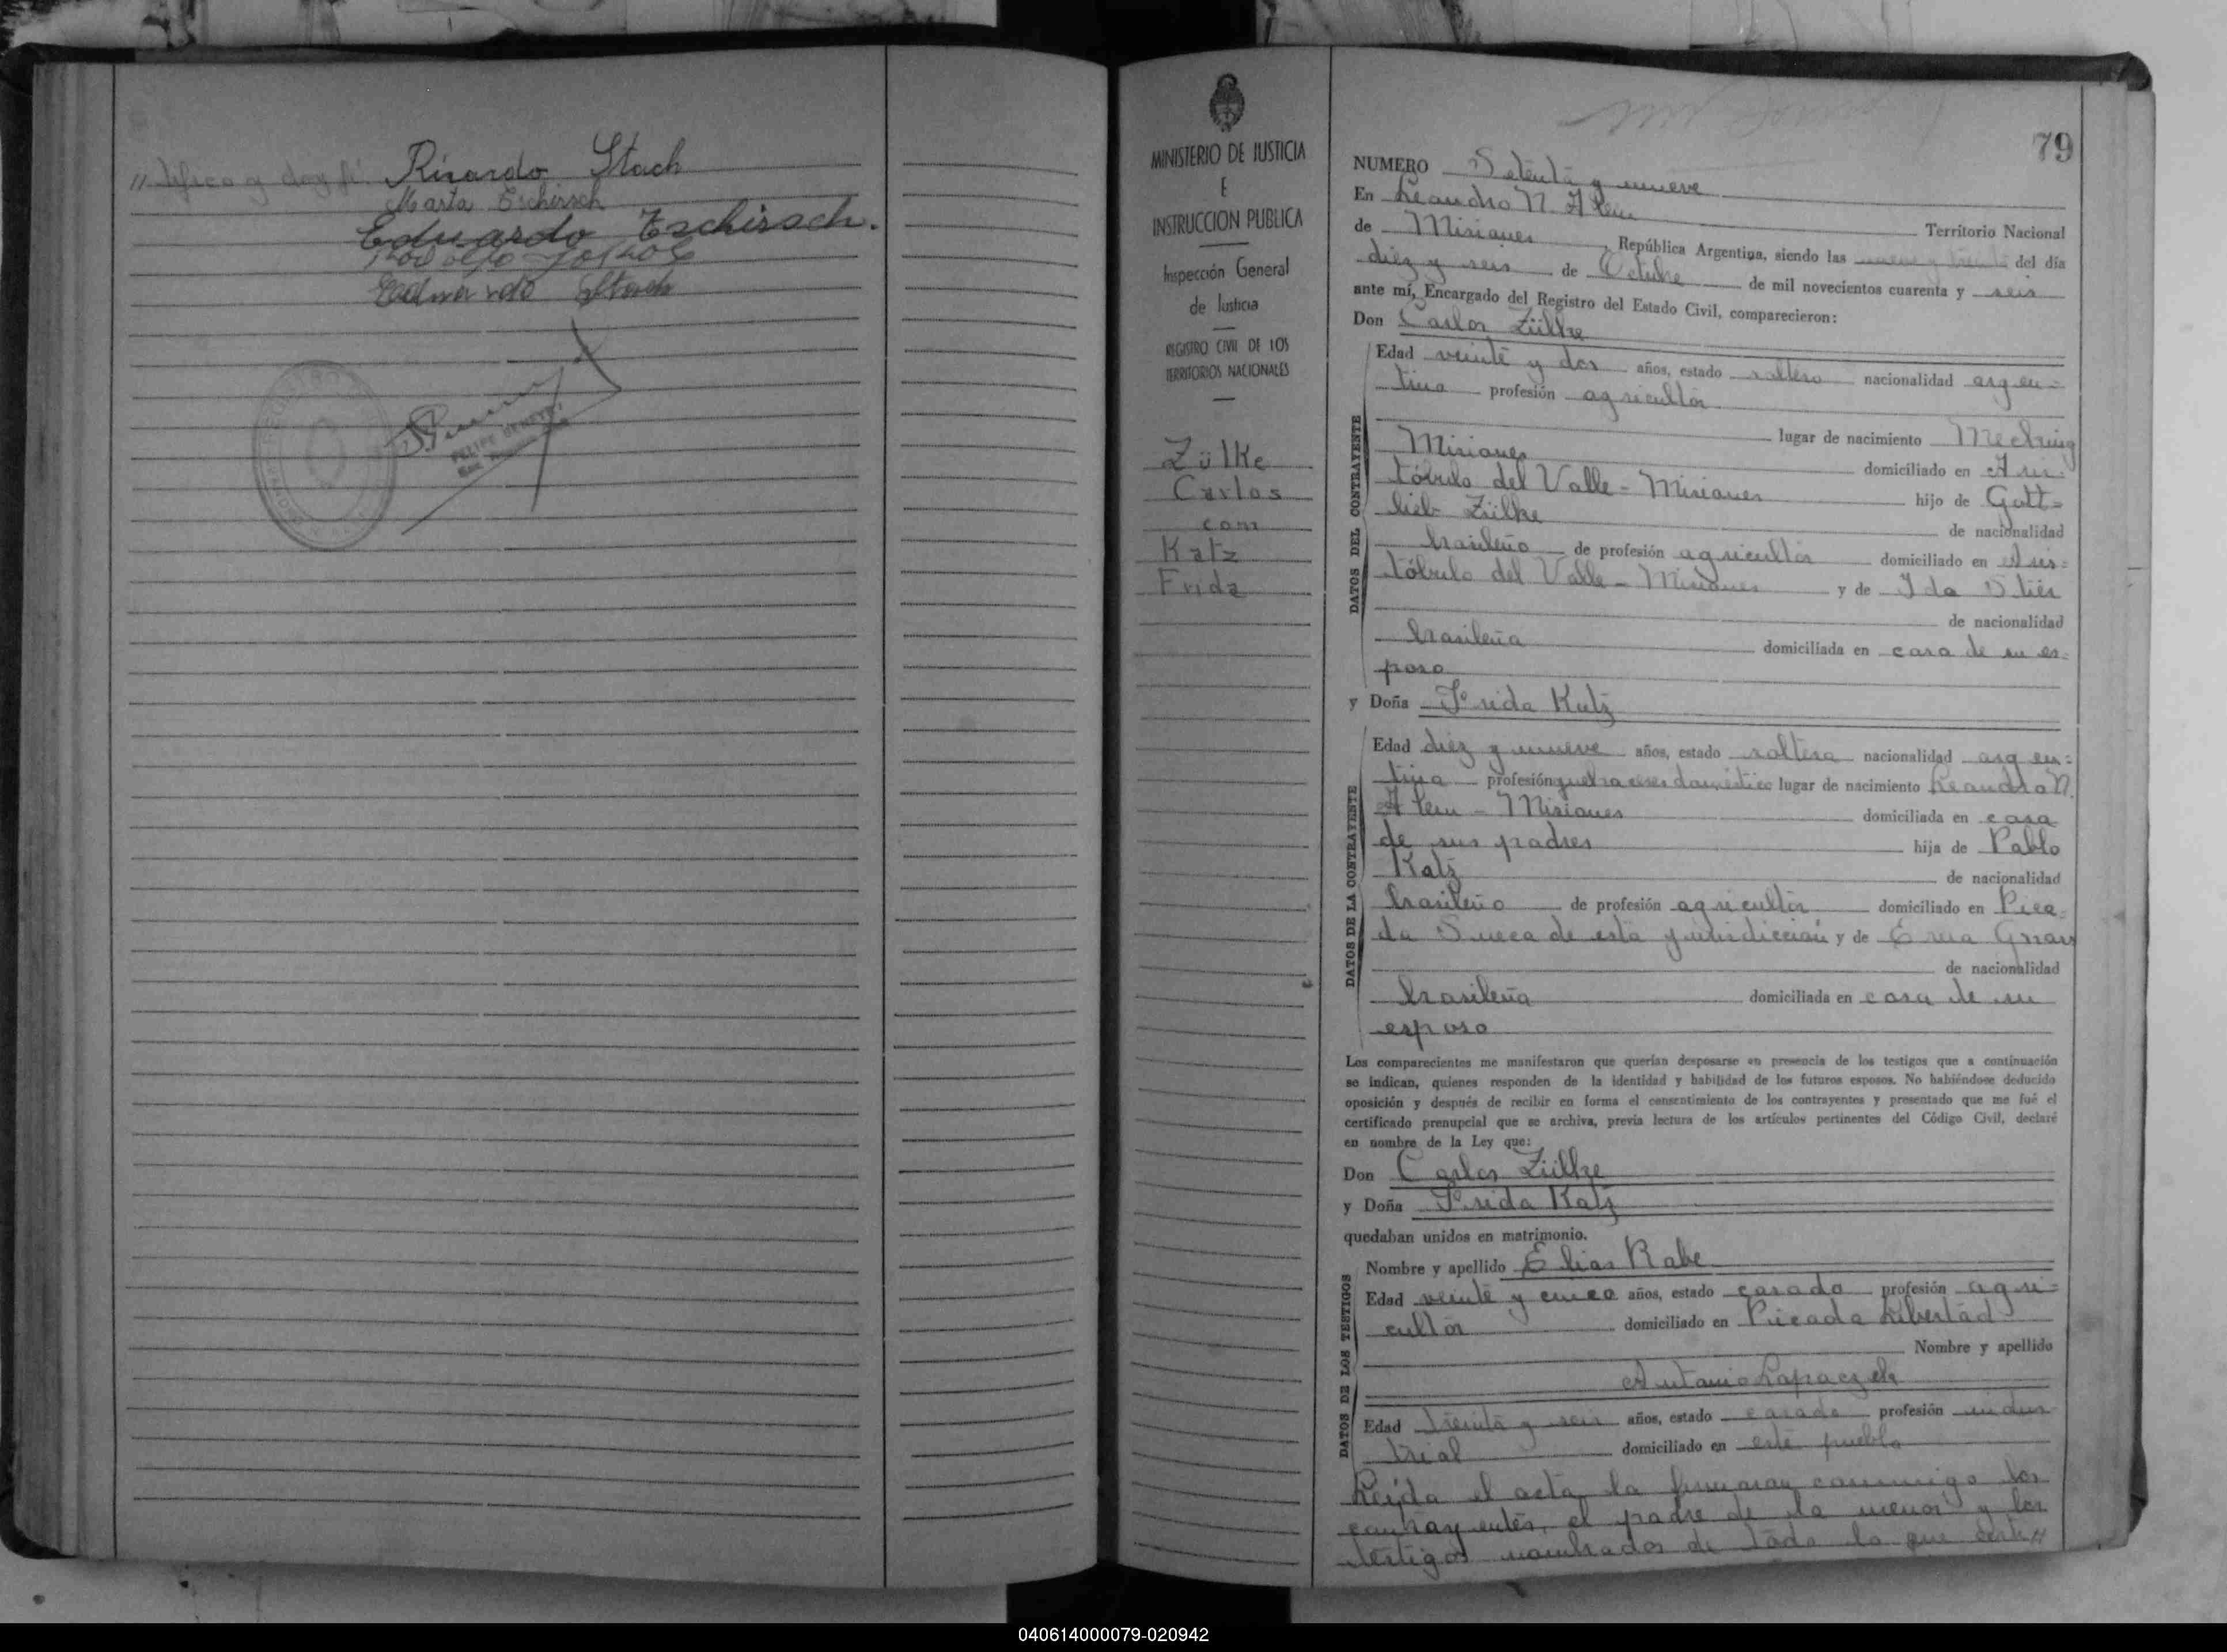 "tifico y doy fé. Ricardo Stach
Marta Eschirsch
Eduardo Eschirsch.
Rodolfo
Eduardo Stach
FELIPE
MINISTERIO DE JUSTICIA
E
INSTRUCCION PUBLICA
Inspección General
de Justicia
REGISTRO CIVIL DE LOS
TERRITORIOS NACIONALES
Zülke
Carlos
con
Katz
Frida
79
NUMERO Setenta y nueve
En Leandro N. Alem Territorio Nacional
de Misiones, República Argentina, siendo las nueve y treinta del día
diez y seis de Octubre de mil novecientos cuarenta y seis
ante mí, Encargado del Registro del Estado Civil, comparecieron:
Don Carlos Zülke
DATOS DEL CONTRAYENTE
Edad veinte y dos años, estado soltero nacionalidad argen=
tina profesión agricultor
lugar de nacimiento Mecking
Misiones domiciliado en Aris=
tóbulo del Valle - Misiones hijo de Gott=
lieb Zülke de nacionalidad
brasileño de profesión agricultor domiciliado en Aris=
tóbulo del Valle - Misiones y de Ida Stiér
de nacionalidad
brasileña domiciliada en casa de su es=
poso
y Doña Frida Katz
DATOS DE LA CONTRAYENTE
Edad diez y nueve años, estado soltera nacionalidad argen=
tina profesión quehaceres doméstico lugar de nacimiento Leandro N.
Alem - Misiones domiciliada en casa
de sus padres hija de Pablo
Katz de nacionalidad
brasileño de profesión agricultor domiciliado en Pica=
da Sueca de esta jurisdicción y de Erna
de nacionalidad
brasileña domiciliada en casa de su
esposo
Los comparecientes me manifestaron que querían desposarse en presencia de los testigos que a continuación
se indican, quienes responden de la identidad y habilidad de los futuros esposos. No habiéndose deducido
oposición y después de recibir en forma el consentimiento de los contrayentes y presentado que me fué el
certificado prenupcial que se archiva, previa lectura de los artículos pertinentes del Código Civil, declaré
en nombre de la Ley que:
Don Carlos Zülke
y Doña Frida Katz
quedaban unidos en matrimonio.
DATOS DE LOS TESTIGOS
Nombre y apellido Elias Rabe
Edad veinte y cinco años, estado casado profesión agri=
cultor domiciliado en Picada Libertad
Nombre y apellido
Antonio Lapaczek
Edad treinta y seis años, estado casado profesión indus
trial domiciliado en este pueblo
Leída el acta, la firmaron conmigo los
contrayentes, el padre de la menor y los
testigos nombrados de todo lo que certi"
040614000079-020942